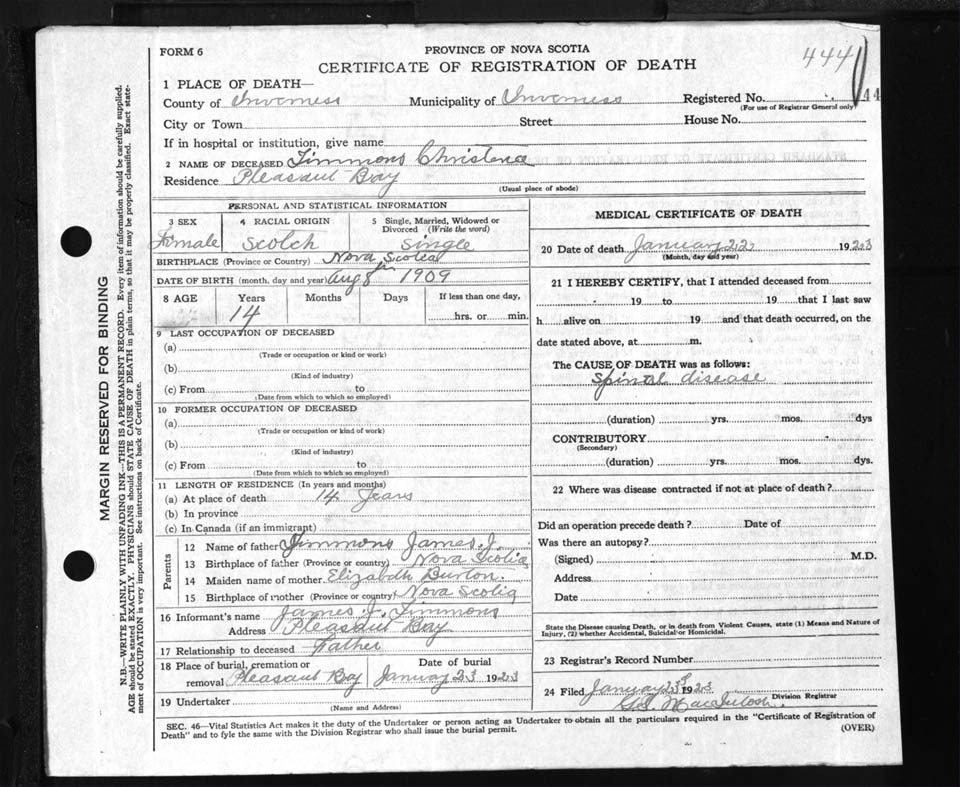 FORM 6
PROVINCE OF NOVA SCOTIA
CERTIFICATE OF REGISTRATION OF DEATH
4440
44
1 PLACE OF DEATH—
County of Inverness Municipality of Inverness Registered No.
(For use of Registrar General only)
City or Town Street House No.
If in hospital or institution, give name
2 NAME OF DECEASED Timmons Christena
Residence Pleasant Bay
(Usual place of abode)
PERSONAL AND STATISTICAL INFORMATION
3 SEX 4 RACIAL ORIGIN 5 Single, Married, Widowed or Divorced (Write the word)
Female Scotch Single
BIRTHPLACE (Province or Country) Nova Scotia
DATE OF BIRTH (month, day and year) Aug 8th 1909
8 AGE Years Months Days If less than one day,
14 hrs. or min.
9 LAST OCCUPATION OF DECEASED
(a)
(Trade or occupation or kind or work)
(b)
(Kind of industry)
(c) From to
(Date from which to which so employed)
10 FORMER OCCUPATION OF DECEASED
(a)
(Trade or occupation or kind of work)
(b)
(Kind of industry)
(c) From to
(Date from which to which so employed)
11 LENGTH OF RESIDENCE (In years and months)
(a) At place of death 14 Years
(b) In province
(c) In Canada (if an immigrant)
Parents
12 Name of father Timmons James J.
13 Birthplace of father (Province or country) Nova Scotia
14 Maiden name of mother Elizabeth Burton.
15 Birthplace of mother (Province or country) Nova Scotia
16 Informant's name James J. Timmons
Address Pleasant Bay
17 Relationship to deceased Father
18 Place of burial, cremation or removal Pleasant Bay Date of burial January 23 1923
19 Undertaker
(Name and Address)
MEDICAL CERTIFICATE OF DEATH
20 Date of death January 22 1923
(Month, day and year)
21 I HEREBY CERTIFY, that I attended deceased from
19 to 19 that I last saw
h alive on 19 and that death occurred, on the
date stated above, at m.
The CAUSE OF DEATH was as follows:
Spinal disease
(duration) yrs. mos. dys
CONTRIBUTORY
(Secondary)
(duration) yrs. mos. dys.
22 Where was disease contracted if not at place of death?
Did an operation precede death? Date of
Was there an autopsy?
(Signed) M.D.
Address
Date
State the Disease causing Death, or in death from Violent Causes, state (1) Means and Nature of
Injury, (2) whether Accidental, Suicidal or Homicidal.
23 Registrar's Record Number
24 Filed January 23 1923
MacIntosh
Division Registrar
SEC. 46—Vital Statistics Act makes it the duty of the Undertaker or person acting as Undertaker to obtain all the particulars required in the "Certificate of Registration of
Death" and to fyle the same with the Division Registrar who shall issue the burial permit.
(OVER)
MARGIN RESERVED FOR BINDING
N.B.—WRITE PLAINLY WITH UNFADING INK—THIS IS A PERMANENT RECORD. Every item of information should be carefully supplied.
AGE should be stated EXACTLY. PHYSICIANS should STATE CAUSE OF DEATH in plain terms, so that it may be properly classified. Exact state-
ment of OCCUPATION is very important. See instructions on back of Certificate.